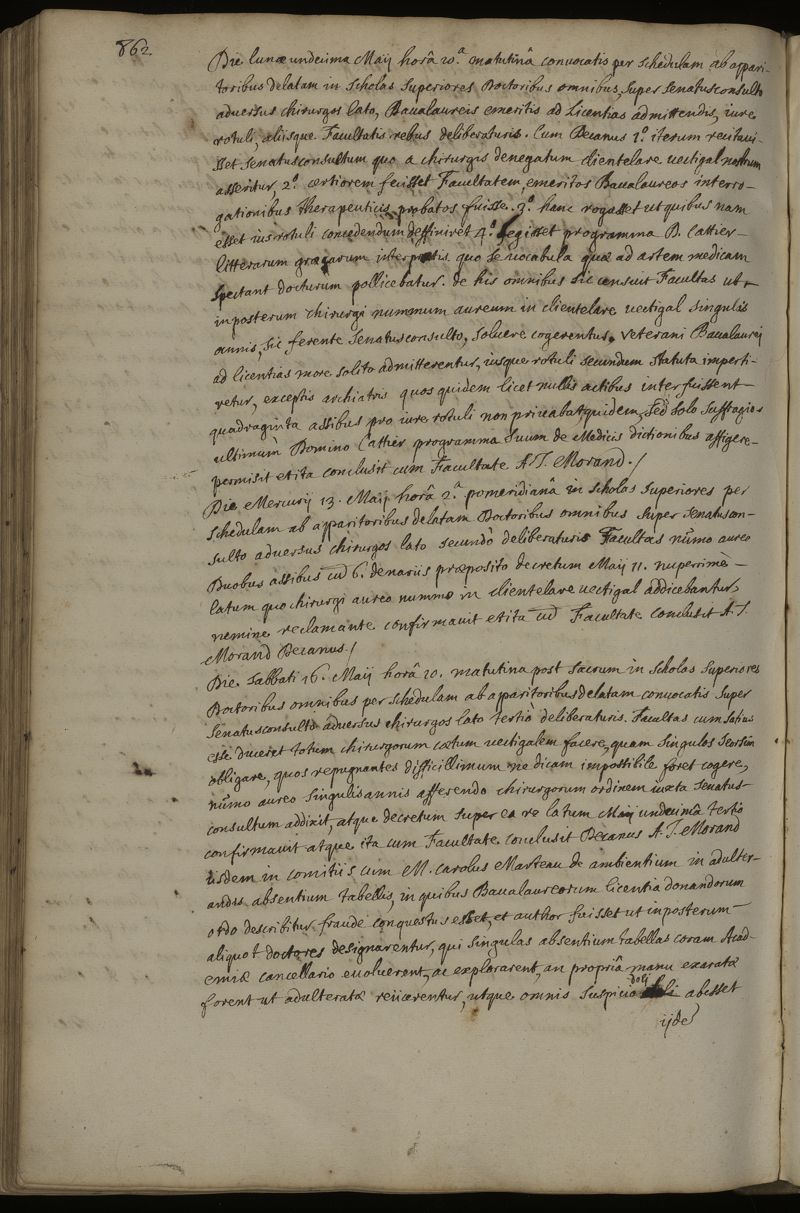 862.
Die lunæ undecima Maij horâ 10.ª matutinâ convocatis per schedulam ab appari-
toribus delatam in scholas superiores Doctoribus omnibus, super senatusconsulto
adversus chirurgos lato, Baualaureis emeritis ad Licentias admittendis, iure
rotuli, aliisque Facultatis rebus deliberaturis. Cum Decanus 1.º iterum recitavi-
sset senatusconsultum quo a chirurgis denegatum clientelare vectigal nostrum
asseritur, 2.º certiorem fecisset Facultatem, emeritos Baualaureos interro-
gationibus therapeuticis probatos fuisse. 3.º hanc rogasset ut quibus nam
esset ius rotuli concedendum deffiniret 4.º legisset programma D. Cattier
litterarum græcarum interpretis quo se vocabula quæ ad artem medicam
spectant docturum pollicebatur. de his omnibus sic censuit Facultas ut
inposterum chirurgi nummum aureum in clientelare vectigal singulis
annis, sic ferente senatusconsulto, solvere cogerentur, veterani Baualaurei
ad licentias more solito admitterentur, iusque rotuli secundum statuta imperti-
retur, exceptis archiatris quos quidem licet nullis actibus interfuissent
quadraginta assibus pro iure rotuli non privabat quidem, sed solo suffragio
ultimum Domino Cattier programma suum de Medicis dictionibus affigere
permisit et ita conclusit cum Facultate A. J. Morand./
Die Mercurij 13. Maij horâ 2.ª pomeridianâ in scholas superiores per
schedulam ab apparitoribus delatam Doctoribus omnibus super senatuscon-
sulto adversus chirurgos lato secundò deliberaturis Facultas nūmo aureo
Duobus assibus cū 6. denariis præposito decretum Maij 11. nuperrimè
latum quo chirurgi aureo nummo in clientelare vectigal addicebantur,
nemine reclamante confirmavit et ita cū Facultate conclusit A. J.
Morand Decanus./
Die Sabbati 16. Maij horâ 10. matutina post sacrum in scholas superiores
Doctoribus omnibus per schedulam ab apparitoribus delatam convocatis super
senatusconsulto adversus chirurgos lato tertiò deliberaturis. Facultas cum satius
esse duceret totum chirurgorum cœtum vectigalem facere, quam singulos seorsim
obligare, quos repugnantes difficillimum ne dicam impossibile foret cogere,
nūmo aureo singulis annis afferendo chirurgorum ordinem iuxta senatus-
consultum addixit, atque decretum super ea re latum Maij undecimâ tertio
confirmavit atque ita cum Facultate conclusit Decanus A. J. Morand
iisdem in comitiis cum M. Carolus Marteau de ambientium in adulter-
andis absentium tabellis, in quibus Baualaureorum licentia donandorum
ordo describitur fraude conquestus esset, et author fuisset ut inposterum
aliquot doctores designarentur, qui singulas absentium tabellas coram Acad-
emiæ cancellario evolverent, ac explorarent, an propriâ manu exaratæ
forent ut adulteratæ reiicerentur, utque omnis suspicio doli abesset
ijde